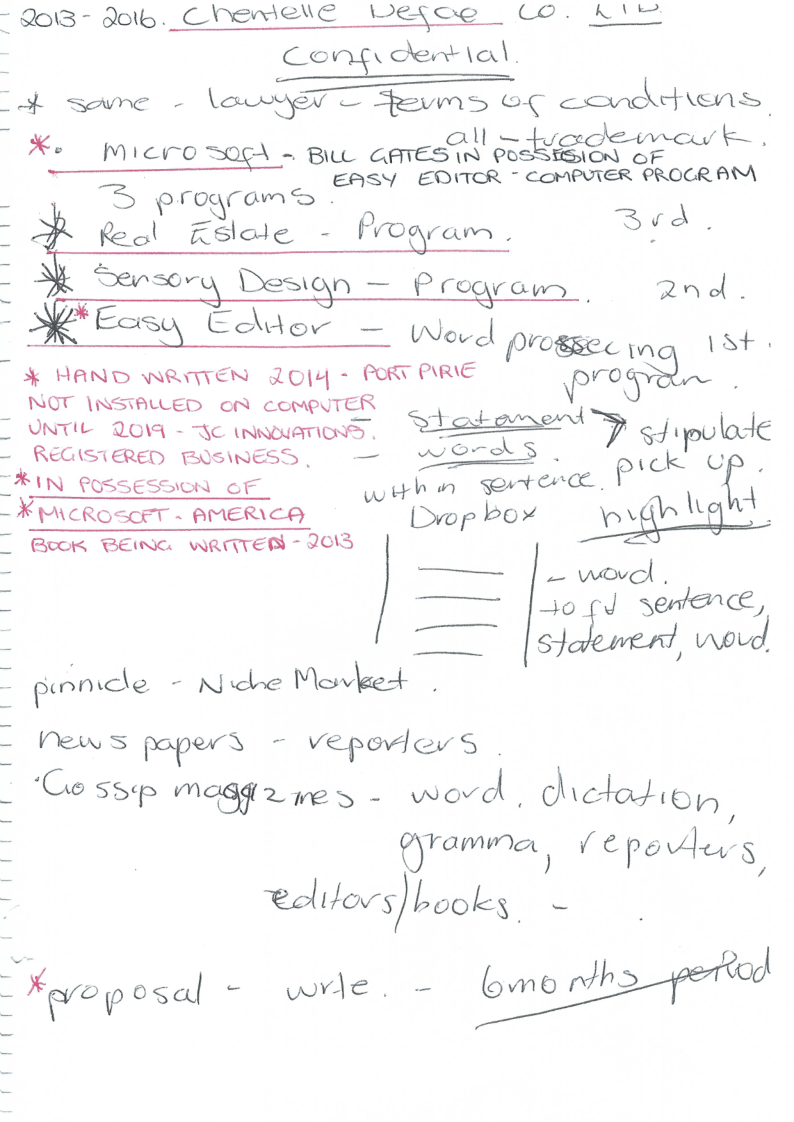 2013-2016. Chentelle Defae Co. LTD
Confidential.
* same - lawyer - terms of conditions.
all - trademark.
*. Microsoft - BILL GATES IN POSSESION OF
EASY EDITOR - COMPUTER PROGRAM
3 programs.
* Real Estate - Program. 3rd.
* Sensory Design - Program. 2nd.
* *Easy Editor - Word prossecing 1st.
program.
* HAND WRITTEN 2014 - PORT PIRIE
NOT INSTALLED ON COMPUTER
UNTIL 2019 - JC INNOVATIONS.
REGISTERED BUSINESS.
* IN POSSESSION OF
* MICROSOFT - AMERICA
BOOK BEING WRITTEN - 2013
- statament → stipulate
- words. pick up.
within sentence. highlight
Dropbox
- word.
to fd sentence,
statement, word.
pinnicle - Niche Market.
newspapers - reporters.
Gossip maggzines - word, dictation,
gramma, reporters,
editors/books. -
*proposal - write. - 6 months period